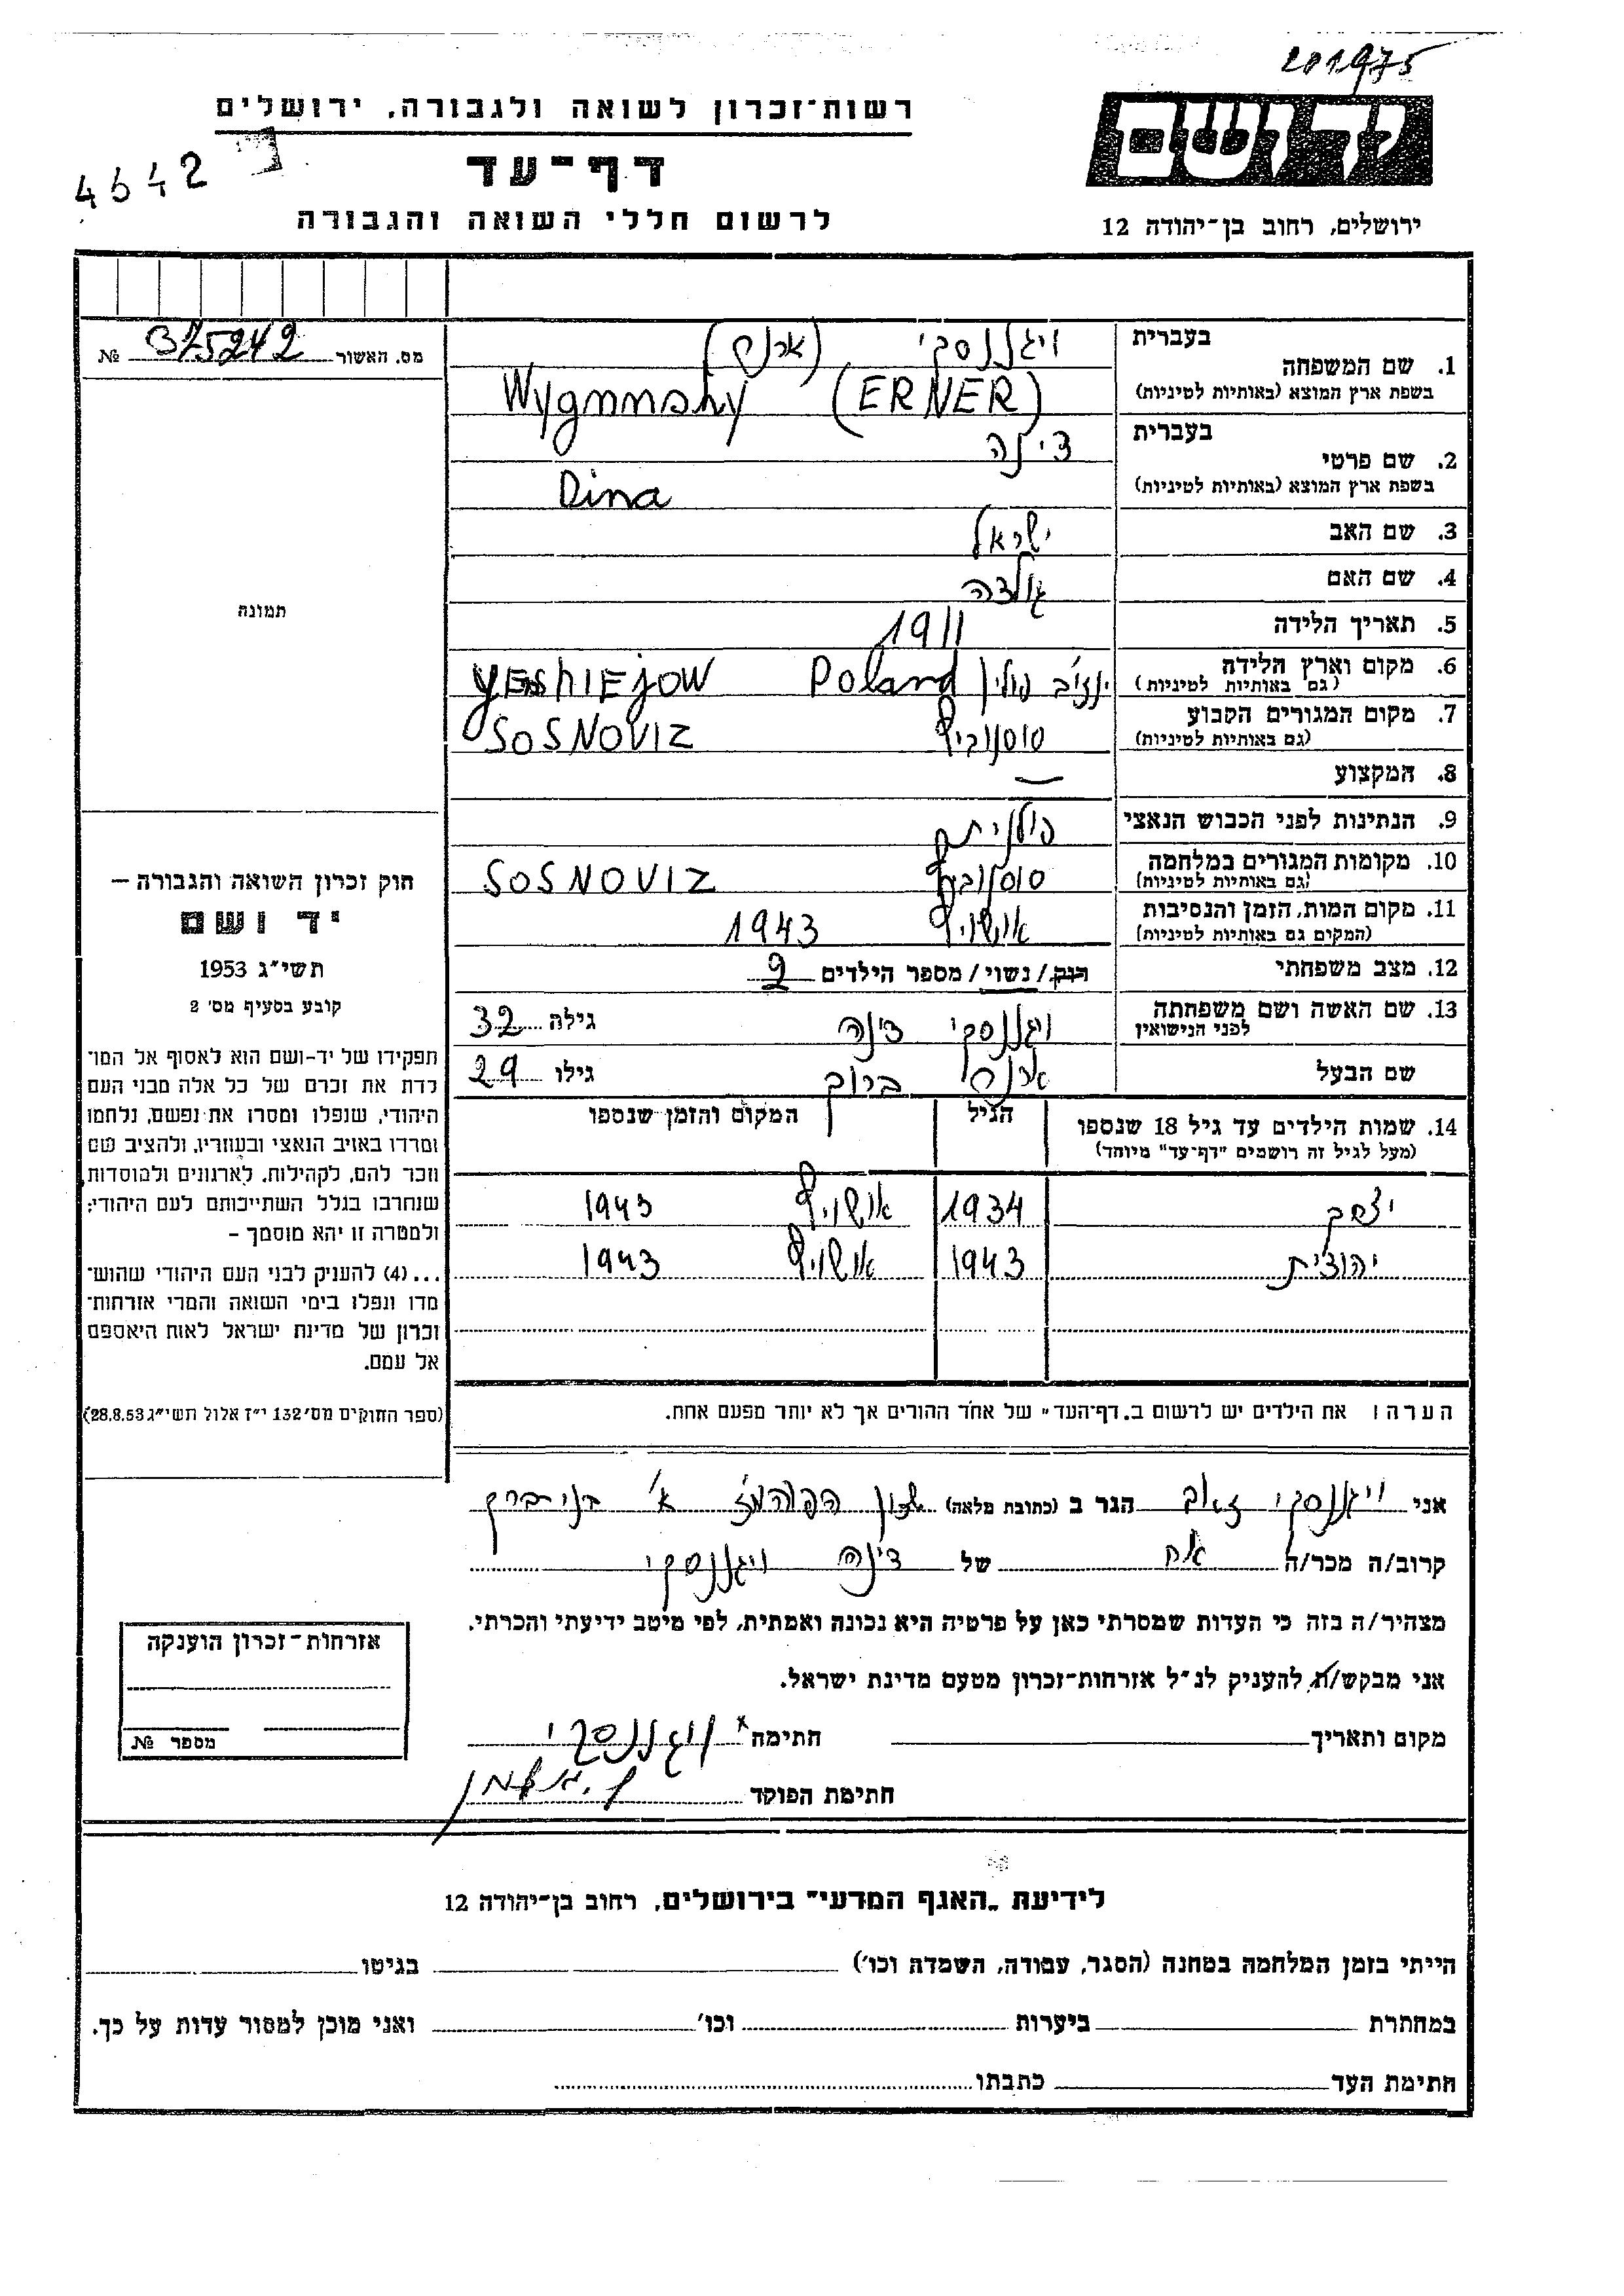 201975
רשות־זכרון לשואה ולגבורה, ירושלים
יד ושם
4642
דף־עד
לרשום חללי השואה והגבורה
ירושלים, רחוב בן־יהודה 12
מס. האשור 375242 №
תמונה
חוק זכרון השואה והגבורה —
יד ושם
תשי״ג 1953
קובע בסעיף מס׳ 2
תפקידו של יד-ושם הוא לאסוף אל המו־
לדת את זכרם של כל אלה מבני העם
היהודי, שנפלו ומסרו את נפשם, נלחמו
ומרדו באויב הנאצי ובעוזריו, ולהציב שם
וזכר להם, לקהילות, לארגונים ולמוסדות,
שנחרבו בגלל השתייכותם לעם היהודי;
ולמטרה זו יהא מוסמך –
...(4) להעניק לבני העם היהודי שהוש־
מדו ונפלו בימי השואה והמרי אזרחות־
זכרון של מדינת ישראל לאות היאספם
אל עמם.
(ספר החוקים מס׳ 132 י״ז אלול תשי״ג 28.8.53)
בעברית ויגננסקי (ארנר)
1. שם המשפחה
בשפת ארץ המוצא (באותיות לטיניות) Wygnnnsky (ERNER)
בעברית דינה
2. שם פרטי
בשפת ארץ המוצא (באותיות לטיניות) Dina
3. שם האב ישראל
4. שם האם גולדה
5. תאריך הלידה 1911
6. מקום וארץ הלידה פולין Poland
(גם באותיות לטיניות)
7. מקום המגורים הקבוע סוסנוביץ SOSNOVIZ
(גם באותיות לטיניות)
8. המקצוע —
9. הנתינות לפני הכבוש הנאצי פולנית
10. מקומות המגורים במלחמה סוסנוביץ SOSNOVIZ
(גם באותיות לטיניות)
11. מקום המות, הזמן והנסיבות אושויץ 1943
(המקום גם באותיות לטיניות)
12. מצב משפחתי רווק/נשוי/מספר הילדים 2
13. שם האשה ושם משפחתה ויגננסקי דינה גילה 32
לפני הנישואין
שם הבעל ארנר ברוך גילו 29
14. שמות הילדים עד גיל 18 שנספו הגיל המקום והזמן שנספו
(מעל לגיל זה רושמים "דף־עד" מיוחד)
יצחק 1934 אושויץ 1943
יהודית 1943 אושויץ 1943
הערה: את הילדים יש לרשום ב„דף־העד״ של אחד ההורים אך לא יותר מפעם אחת.
אני ויגננסקי זאב הגר ב (כתובת מלאה) שכון הפוהמז א׳ בני ברק
קרוב/ה מכר/ה אח של דינה ויגננסקי
מצהיר/ה בזה כי העדות שמסרתי כאן על פרטיה היא נכונה ואמתית, לפי מיטב ידיעתי והכרתי.
אני מבקש/ת להעניק לנ״ל אזרחות־זכרון מטעם מדינת ישראל.
מקום ותאריך חתימה ויגננסקי
חתימת הפוקד
אזרחות־זכרון הוענקה
מספר №
לידיעת „האגף המדעי״ בירושלים, רחוב בן־יהודה 12
הייתי בזמן המלחמה במחנה (הסגר, עבודה, השמדה וכו׳) בגיטו
במחתרת ביערות וכו׳ ואני מוכן למסור עדות על כך.
חתימת העד כתבתו